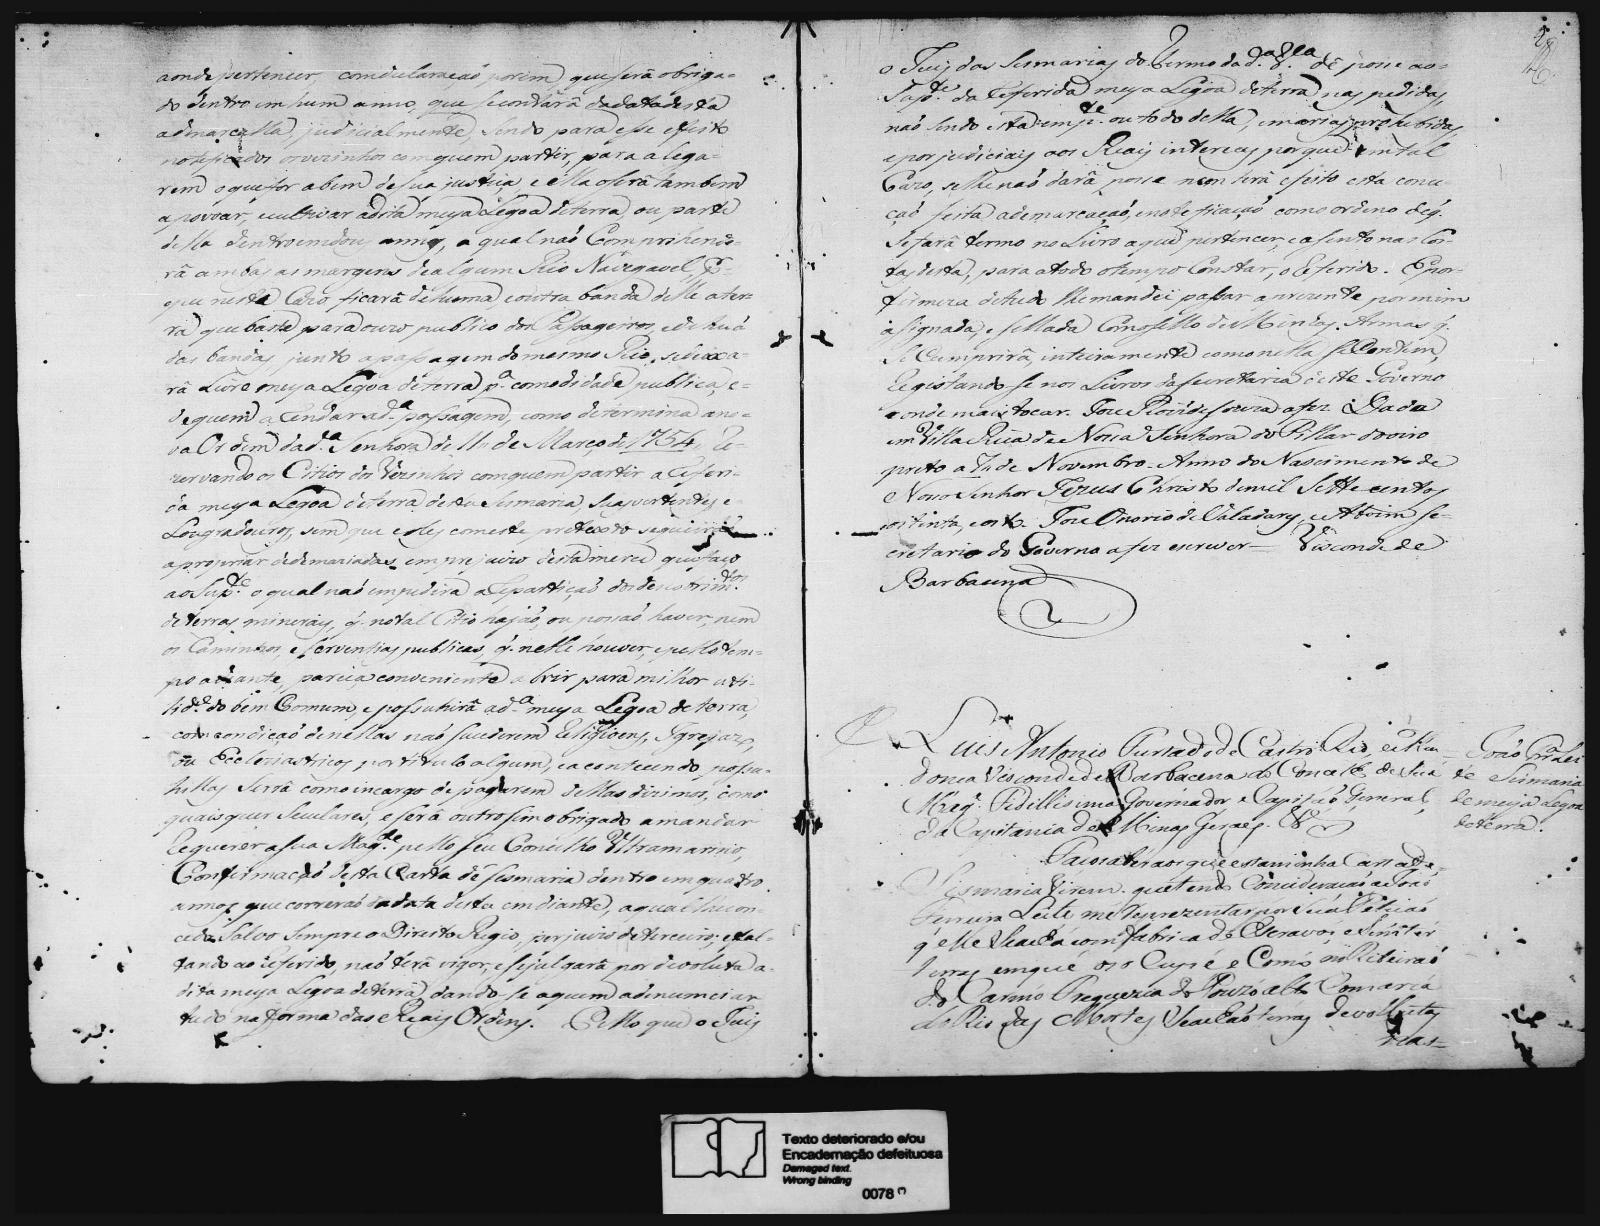 aonde pertencer, com declaração porem que será obriga=
do dentro em hum anno, que se contará da data desta
a demarcalla judicialmente, sendo para esse efeito
notificados os vezinhos com quem partir, para alega=
rem o que for a bem de sua justiça, e ella o será tambem
a povoar, e cultivar a dita meya Legoa de terra, ou parte
della dentro em dous annos, a qual naó Comprihende=
rá ambas as margens de algum Rio Navegavel, P=
que neste Cazo ficará de huma, e outra banda delle a ter=
ra que baste para o uzo publico dos Passageiros, e de huã
das bandas junto a passagem do mesmo Rio, se deixa=
rá Livre meya Legoa de terra p.ª comodidade publica, e=
de quem a Rendar a d.ª passagem, como determina a no=
va Ordem da d.ª Senhora de 11 de Março de 1754, Re=
zervando os Citios dos Vezinhos com quem partir a Referi=
da meya Legoa de terra desta Sesmaria, suas vertentes, e=
Lougradouros, sem que elles com este pretexto se queiraó
apropriar de demaziadas, em prejuizo desta merce que faço
ao Sup.te o qual naó impedirá a Repartiçaó dos descobrim.tos
de terras mineraes, q. no tal Citio hajaó, ou possaó haver, nem
os Caminhos, e Serventias publicas, q. nelle houver, e pello tem=
po adiante, pareça conveniente abrir para milhor uti=
lid.e do bem Comum, e possuhirá a d.ª meya Legoa de terra,
com condiçaó de nellas naó sucederem Religioens, Igrejas,
ou Ecclesiasticos, por titulo algum, e acontecendo possu=
hillas será com o incargo de pagarem dellas dizimos, como
quaisquer Seculares, e será outro sim obrigado a mandar
Requerer a Sua Mag.de pello seu Concelho Ultramarino,
Confirmaçaó desta Carta de sesmaria dentro em quatro
annos que correraó da data desta em diante, a qual lhe con=
cedo Salvo sempre o Direito Regio, perjuizo de terceiro; e fal=
tando ao referido, naó terá vigor, e se julgará por devoluta a=
dita meya Legoa de terra, dando=se a quem a denunciar
tudo na forma das Reais Ordens. Pello que o Juis
o Juis das Sesmarias do Termo da d.ª V.ª dê posse ao=
Sup.te da Referida meya Legoa de terra nas pedidas,
naó sendo esta em p.te ou todo della, em areas prohibidas,
e por judiciais aos Reais interces porque em tal
Cazo, se lhe naó dará posse nem terá efeito esta conce=
çaó feita a demarcaçaó, e notificaçaó como ordeno de q.
se fará termo no Livro a que pertencer, e asento nas Cos=
tas desta, para a todo o tempo Constar, o Referido. E por
firmeza de tudo lhe mandei passar a prezente por mim
asignada, e sellada Com o sello de Minhas Armas q.
se Cumprirá, inteiramente como nella se Contem,
Registando-se nos Livros da secretaria deste Governo
e onde mais tocar. Joze a fez. Dada
em Villa Rica de Nossa Senhora do Pillar do oiro
preto a de Novembro. Anno do Nascimento de
Nosso Senhor Jezus Christo de mil Sette centos
oitenta, e oito. Joze Onorio de Valadares e Aboim se=
cretario do Governo a fez escrever= Visconde de
Barbacena
Luis Antonio Furtado de Castro Rio e Men=
donca Visconde de Barbacena do Concelho de Sua
Mag.e Fidellissima Governador e Capitaó General,
da Capitania de Minas Geraes. &
João Frr.ª Leite
de Sismaria
de meya Legoa
de terra.
Faço saber aos que esta minha Carta de,
Sismaria virem. que tendo Consideraçaó a Joaó
Ferreira Leite me Reprezentar por sua Petiçaó
q elle com fabrica de Escravos, e sem ter
terras em que os e no Ribeiraó
do Carmo Freguezia do Comarca
do Rio das Mortes terras devollutas